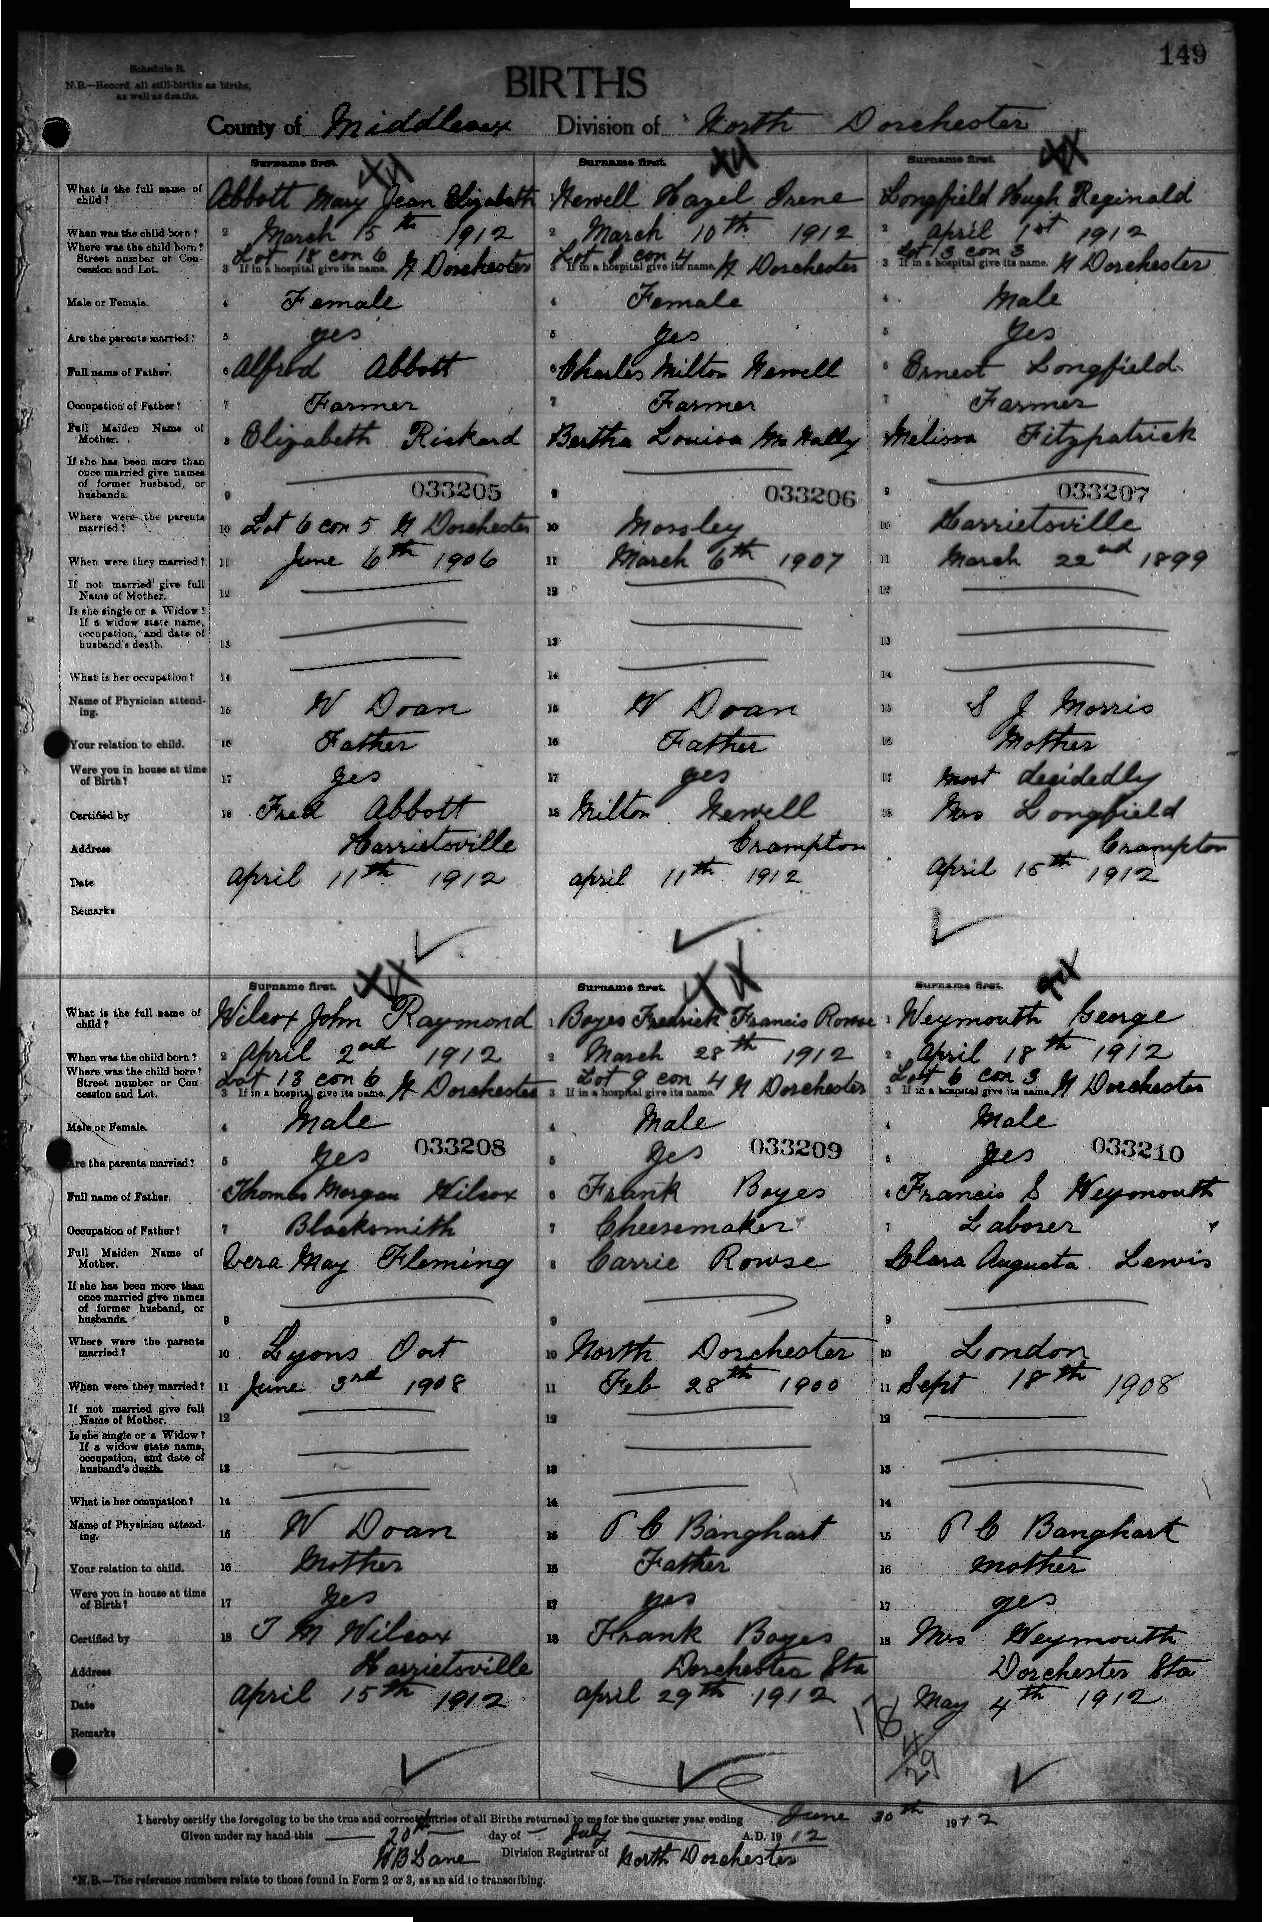 149
Schedule B.
N.B.—Record all still-births as births,
as well as deaths.
BIRTHS
County of Middlesex Division of North Dorchester
Surname first. Surname first. Surname first.
What is the full name of child? Abbott Mary Jean Elizabeth Newell Hazel Irene Longfield Hugh Reginald
When was the child born? 2 March 15th 1912 2 March 10th 1912 2 April 1st 1912
Where was the child born? Street number or Concession and Lot. Lot 18 con 6 Lot 8 con 4 Lot 13 con 3
3 If in a hospital give its name. N Dorchester 3 If in a hospital give its name. N Dorchester 3 If in a hospital give its name. N Dorchester
Male or Female. 4 Female 4 Female 4 Male
Are the parents married? 5 yes 5 yes 5 Yes
Full name of Father. 6 Alfred Abbott 6 Charles Milton Newell 6 Ernest Longfield
Occupation of Father? 7 Farmer 7 Farmer 7 Farmer
Full Maiden Name of Mother. 8 Elizabeth Rickard Bertha Louisa McNally Melissa Fitzpatrick
If she has been more than once married give names of former husband, or husbands. 9 033205 9 033206 9 033207
Where were the parents married? 10 Lot 6 con 5 N Dorchester 10 Mossley 10 Harrietsville
When were they married? 11 June 6th 1906 11 March 6th 1907 11 March 22nd 1899
If not married give full Name of Mother. 12 12 12
Is she single or a Widow? If a widow state name, occupation, and date of husband's death. 13 13 13
What is her occupation? 14 14 14
Name of Physician attending. 15 W Doan 15 W Doan 15 S J Morris
Your relation to child. 16 Father 16 Father 16 Mother
Were you in house at time of Birth? 17 yes 17 yes 17 most decidedly
Certified by 18 Fred Abbott 18 Milton Newell 18 Mrs Longfield
Address Harrietsville Crampton Crampton
Date April 11th 1912 april 11th 1912 April 15th 1912
Remarks
Surname first. Surname first. Surname first.
What is the full name of child? Wilcox John Raymond 1 Boyes Fredrick Francis Rowse 1 Weymouth George
When was the child born? 2 April 2nd 1912 2 March 28th 1912 2 April 18th 1912
Where was the child born? Street number or Concession and Lot. Lot 13 con 6 Lot 9 con 4 Lot 6 con 3
3 If in a hospital give its name. N Dorchester 3 If in a hospital give its name. N Dorchester 3 If in a hospital give its name. N Dorchester
Male or Female. 4 Male 4 Male 4 Male
Are the parents married? 5 Yes 033208 5 Yes 033209 5 Yes 033210
Full name of Father. Thomas Morgan Wilcox 6 Frank Boyes 6 Francis S Weymouth
Occupation of Father? 7 Blacksmith 7 Cheesemaker 7 Laborer
Full Maiden Name of Mother. Vera May Fleming 8 Carrie Rowse Clara Augusta Lewis
If she has been more than once married give names of former husband, or husbands. 9 9 9
Where were the parents married? 10 Lyons Ont 10 North Dorchester 10 London
When were they married? 11 June 3rd 1908 11 Feb 28th 1900 11 Sept 18th 1908
If not married give full Name of Mother. 12 12 12
Is she single or a Widow? If a widow state name, occupation, and date of husband's death. 13 13 13
What is her occupation? 14 14 14
Name of Physician attending. 15 W Doan 15 P C Banghart 15 P C Banghart
Your relation to child. 16 Mother 15 Father 16 mother
Were you in house at time of Birth? 17 Yes 17 yes 17 yes
Certified by 18 T M Wilcox 18 Frank Boyes 18 Mrs Weymouth
Address Harrietsville Dorchester Sta Dorchester Sta
Date April 15th 1912 April 29th 1912 May 4th 1912
Remarks
I hereby certify the foregoing to be the true and correct entries of all Births returned to me for the quarter year ending June 30th 1912
Given under my hand this 20th day of July A.D. 1912
W B Lane Division Registrar of North Dorchester
*N.B.—The reference numbers relate to those found in Form 2 or 3, as an aid to transcribing.